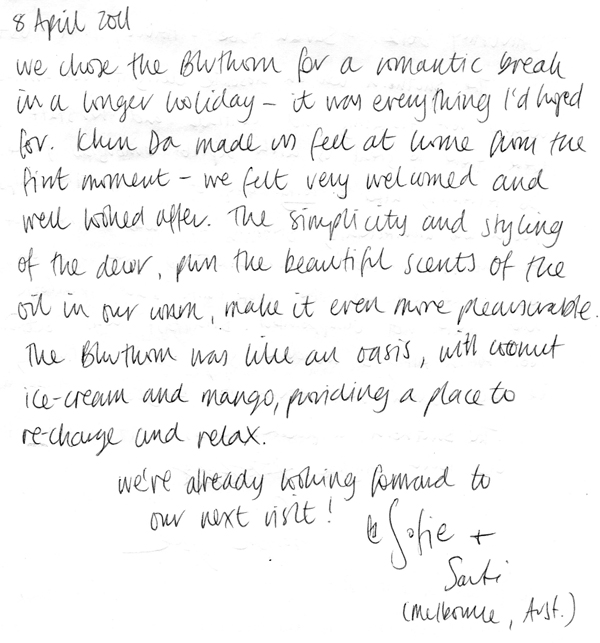 8 April 2011
we chose the Bhuthorn for a romantic break
in a longer holiday – it was everything I'd hoped
for. Khun Da made us feel at home from the
first moment – we felt very welcomed and
well looked after. The simplicity and styling
of the decor, plus the beautiful scents of the
oil in our room, make it even more pleasurable.
The Bhuthorn was like an oasis, with coconut
ice-cream and mango, providing a place to
re-charge and relax.
we're already looking forward to
our next visit!
Sofie +
(Melbourne, Aust.)